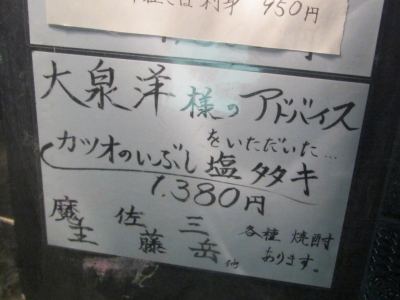 刺身 950円
大泉洋様のアドバイス
をいただいた…
カツオのいぶし塩タタキ
1.380円
魔王 佐藤 三岳 他
各種焼酎
あります。